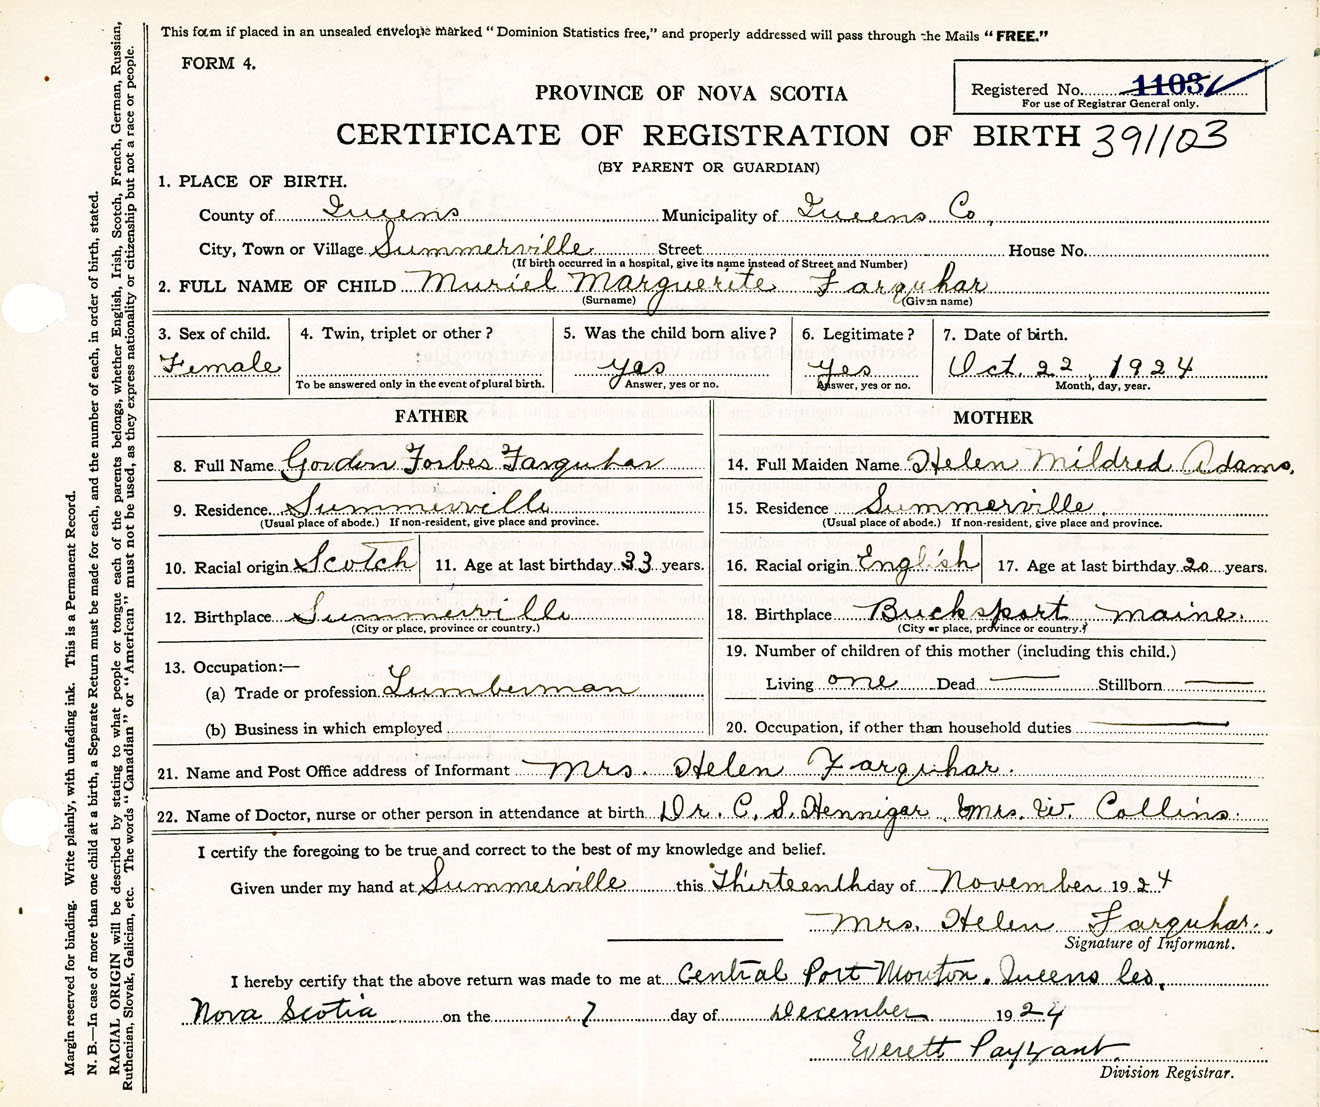 This form if placed in an unsealed envelope marked "Dominion Statistics free," and properly addressed will pass through the Mails "FREE."
FORM 4.
PROVINCE OF NOVA SCOTIA
Registered No. 1103
For use of Registrar General only.
CERTIFICATE OF REGISTRATION OF BIRTH 391103
(BY PARENT OR GUARDIAN)
1. PLACE OF BIRTH.
County of Queens Municipality of Queens Co,
City, Town or Village Summerville Street House No.
(If birth occurred in a hospital, give its name instead of Street and Number)
2. FULL NAME OF CHILD Muriel Marguerite Farquhar
(Surname) (Given name)
3. Sex of child. 4. Twin, triplet or other? 5. Was the child born alive? 6. Legitimate? 7. Date of birth.
Female yes yes Oct. 22, 1924
To be answered only in the event of plural birth. Answer, yes or no. Answer, yes or no. Month, day, year.
FATHER MOTHER
8. Full Name Gordon Forbes Farquhar 14. Full Maiden Name Helen Mildred Adams.
9. Residence Summerville 15. Residence Summerville.
(Usual place of abode.) If non-resident, give place and province. (Usual place of abode.) If non-resident, give place and province.
10. Racial origin Scotch 11. Age at last birthday 33 years. 16. Racial origin English 17. Age at last birthday 20 years.
12. Birthplace Summerville 18. Birthplace Bucksport Maine.
(City or place, province or country.) (City or place, province or country.)
13. Occupation:— 19. Number of children of this mother (including this child.)
(a) Trade or profession Lumberman Living one Dead — Stillborn —
(b) Business in which employed 20. Occupation, if other than household duties —
21. Name and Post Office address of Informant Mrs. Helen Farquhar.
22. Name of Doctor, nurse or other person in attendance at birth Dr. C. S. Hennigar & Mrs. W. Collins.
I certify the foregoing to be true and correct to the best of my knowledge and belief.
Given under my hand at Summerville this Thirteenth day of November 1924
Mrs. Helen Farquhar.
Signature of Informant.
I hereby certify that the above return was made to me at Central Port Mouton. Queens Co,
Nova Scotia on the 7 day of December 1924
Everett Payzant
Division Registrar.
Margin reserved for binding. Write plainly, with unfading ink. This is a Permanent Record.
N. B.—In case of more than one child at a birth, a Separate Return must be made for each, and the number of each, in order of birth, stated.
RACIAL ORIGIN will be described by stating to what people or tongue each of the parents belongs, whether English, Irish, Scotch, French, German, Russian,
Ruthenian, Slovak, Galician, etc. The words "Canadian" or "American" must not be used, as they express nationality or citizenship but not a race or people.